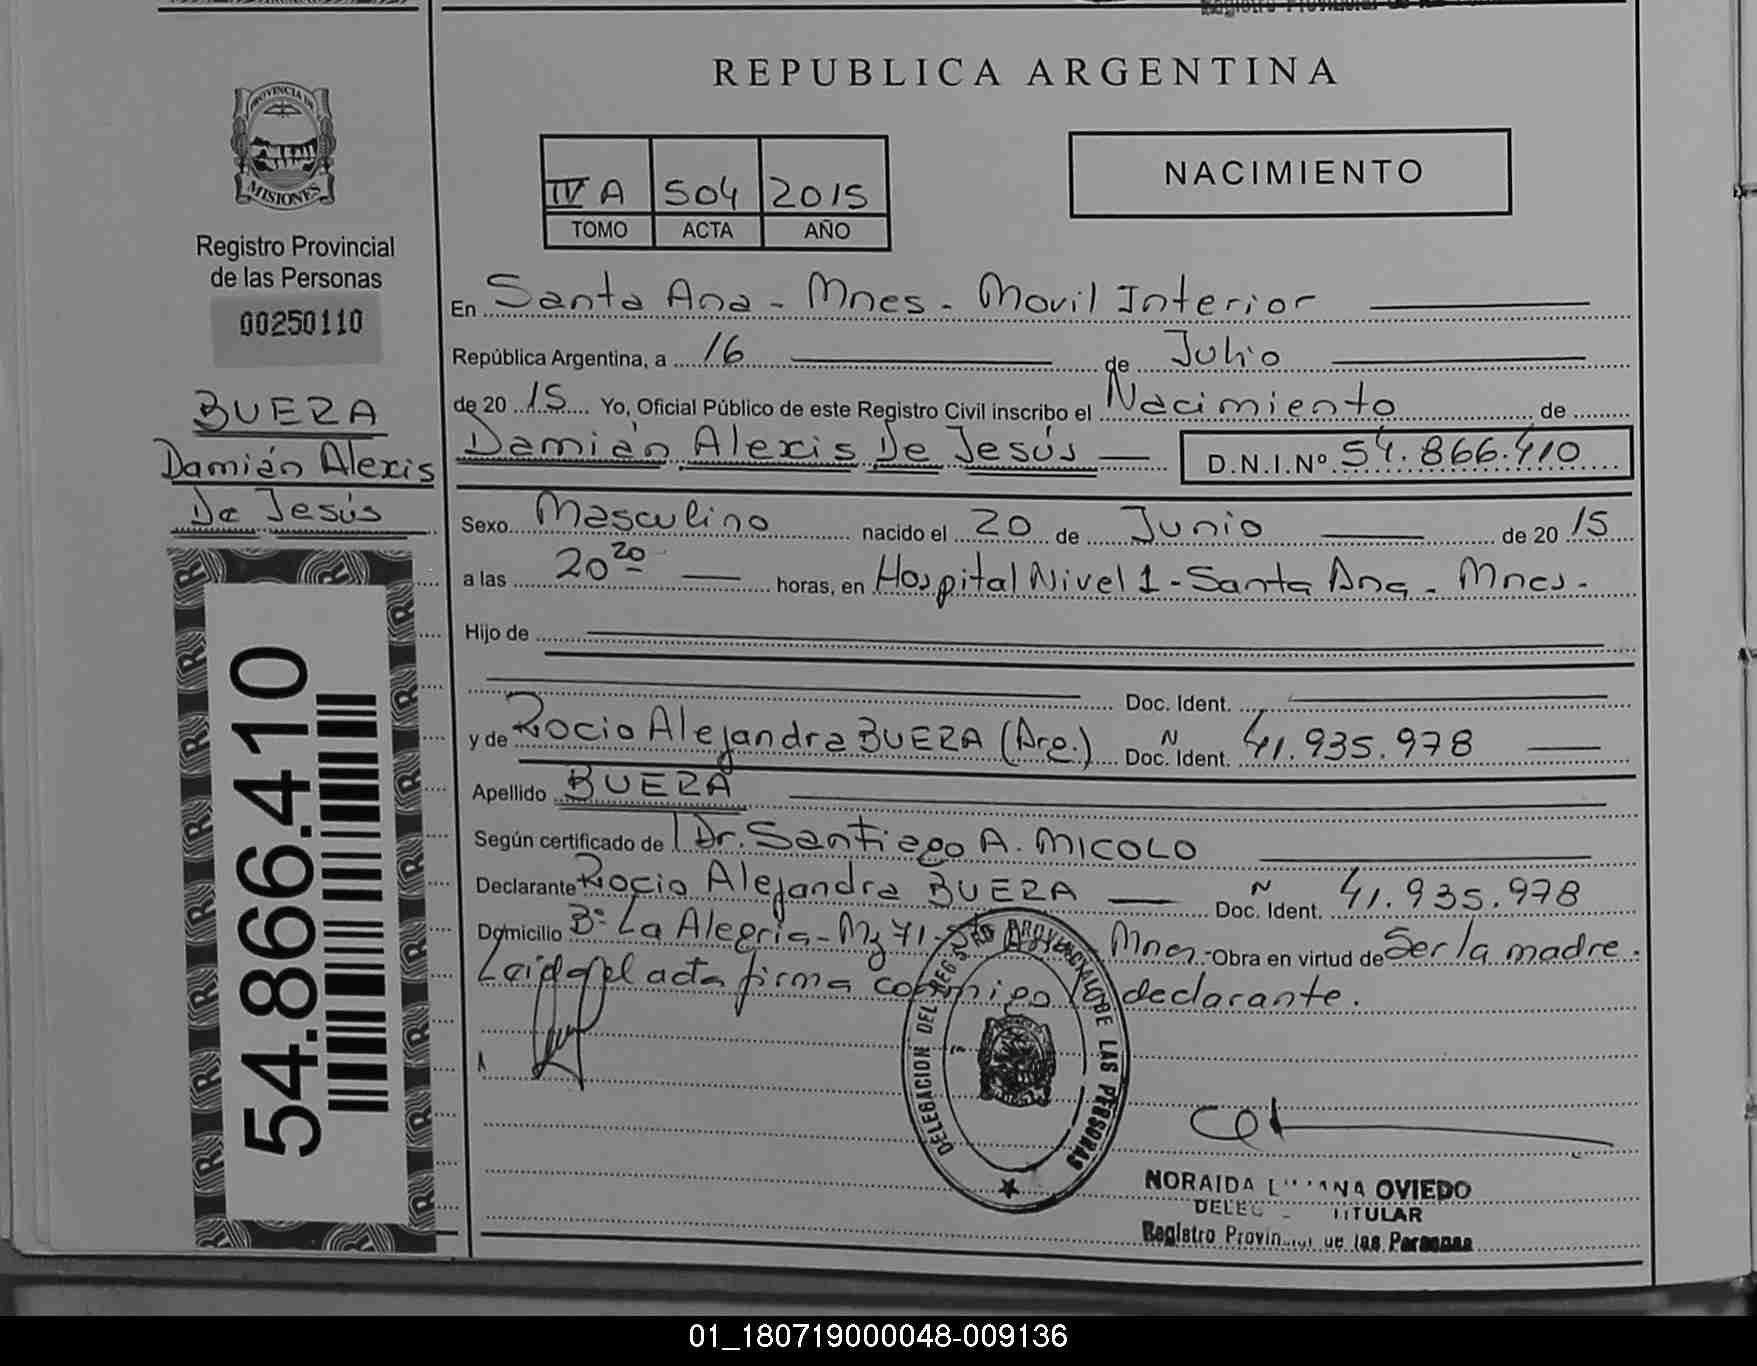 REPUBLICA ARGENTINA
PROVINCIA DE
MISIONES
Registro Provincial
de las Personas
00250110
BUEZA
Damián Alexis
De Jesús
54.866.410
IV A 504 2015
TOMO ACTA AÑO
NACIMIENTO
En Santa Ana - Mnes - Movil Interior
República Argentina, a 16 de Julio
de 20 15 Yo, Oficial Público de este Registro Civil inscribo el Nacimiento de
Damián Alexis De Jesús D.N.I.Nº 54.866.410
Sexo Masculino nacido el 20 de Junio de 20 15
a las 20 20 horas, en Hospital Nivel 1 - Santa Ana - Mnes -
Hijo de
Doc. Ident.
y de Rocio Alejandra BUEZA (Arg.) N Doc. Ident. 41.935.978
Apellido BUEZA
Según certificado de Dr. Santiago A. MICOLO
Declarante Rocio Alejandra BUEZA N Doc. Ident. 41.935.978
Domicilio Bº La Alegria - Mz 71 - Mnes - Obra en virtud de Ser la madre.
Leida el acta firma conmigo la declarante.
DELEGACION DEL REGISTRO PROVINCIAL DE LAS PERSONAS
NORAIDA OVIEDO
TITULAR
Registro Provincial de las Personas
01_180719000048-009136